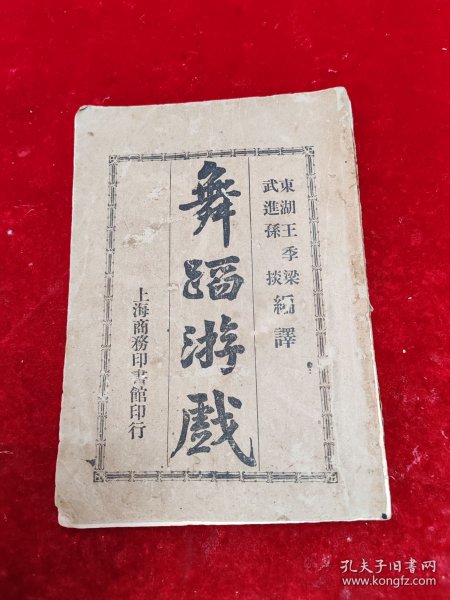 東湖王季梁
武進孫掞
編譯
舞蹈游戲
上海商務印書館印行
孔夫子旧书网
www.kongfz.com